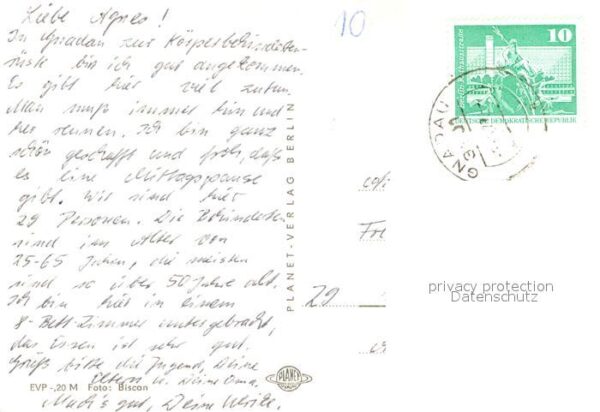 Liebe Agnes!
In Gnadau zur Körperbehinderten-
rüste bin ich gut angekommen.
Es gibt hier viel zutun.
Man muß immer hin und
her rennen. Ich bin ganz
schön geschafft und froh, daß
es eine Mittagspause
gibt. Wir sind hier
29 Personen. Die Behinderten
sind im Alter von
25-65 Jahren, die meisten
sind so über 50 Jahre alt.
Ich bin hier in einem
8-Bett-Zimmer untergebracht,
das Essen ist sehr gut.
Grüß bitte die Jugend, Deine
Eltern u. Deine Oma.
Mach's gut, Deine Ulrike.
EVP -,20 M Foto: Biscan
PLANET-VERLAG BERLIN
PLANET
10
10
DEUTSCHE DEMOKRATISCHE REPUBLIK
GNADAU
29
privacy protection
Datenschutz